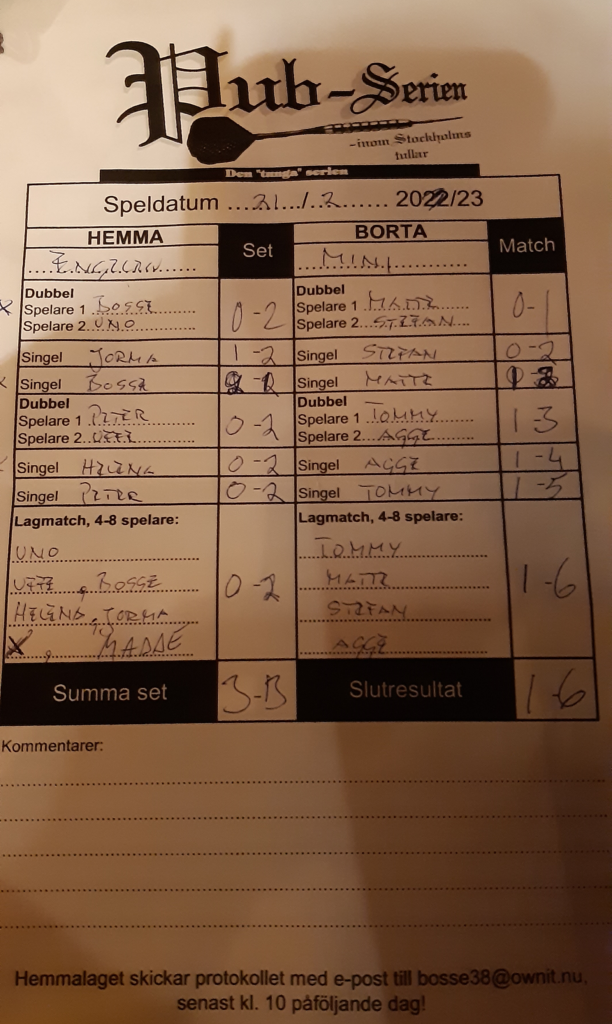 Pub-Serien
-inom Stockholms
tullar
Den "tunga" serien
Speldatum ...21.../.2....... 2022/23
HEMMA Set BORTA Match
MINI
Dubbel Dubbel
Spelare 1 BOSSE 0-2 Spelare 1 MATTE 0-1
Spelare 2 UNO Spelare 2 STEFAN
Singel JORMA 1-2 Singel STEFAN 0-2
Singel BOSSE 2-1 Singel MATTE 1-2
Dubbel Dubbel
Spelare 1 PETER 0-2 Spelare 1 TOMMY 1-3
Spelare 2 UFFE Spelare 2 AGGE
Singel HELENA 0-2 Singel AGGE 1-4
Singel PETER 0-2 Singel TOMMY 1-5
Lagmatch, 4-8 spelare: Lagmatch, 4-8 spelare:
UNO TOMMY
UFFE, BOSSE 0-2 MATTE 1-6
HELENA, JORMA STEFAN
X, MADDE AGGE
Summa set 3-13 Slutresultat 1-6
Kommentarer:
Hemmalaget skickar protokollet med e-post till bosse38@ownit.nu,
senast kl. 10 påföljande dag!